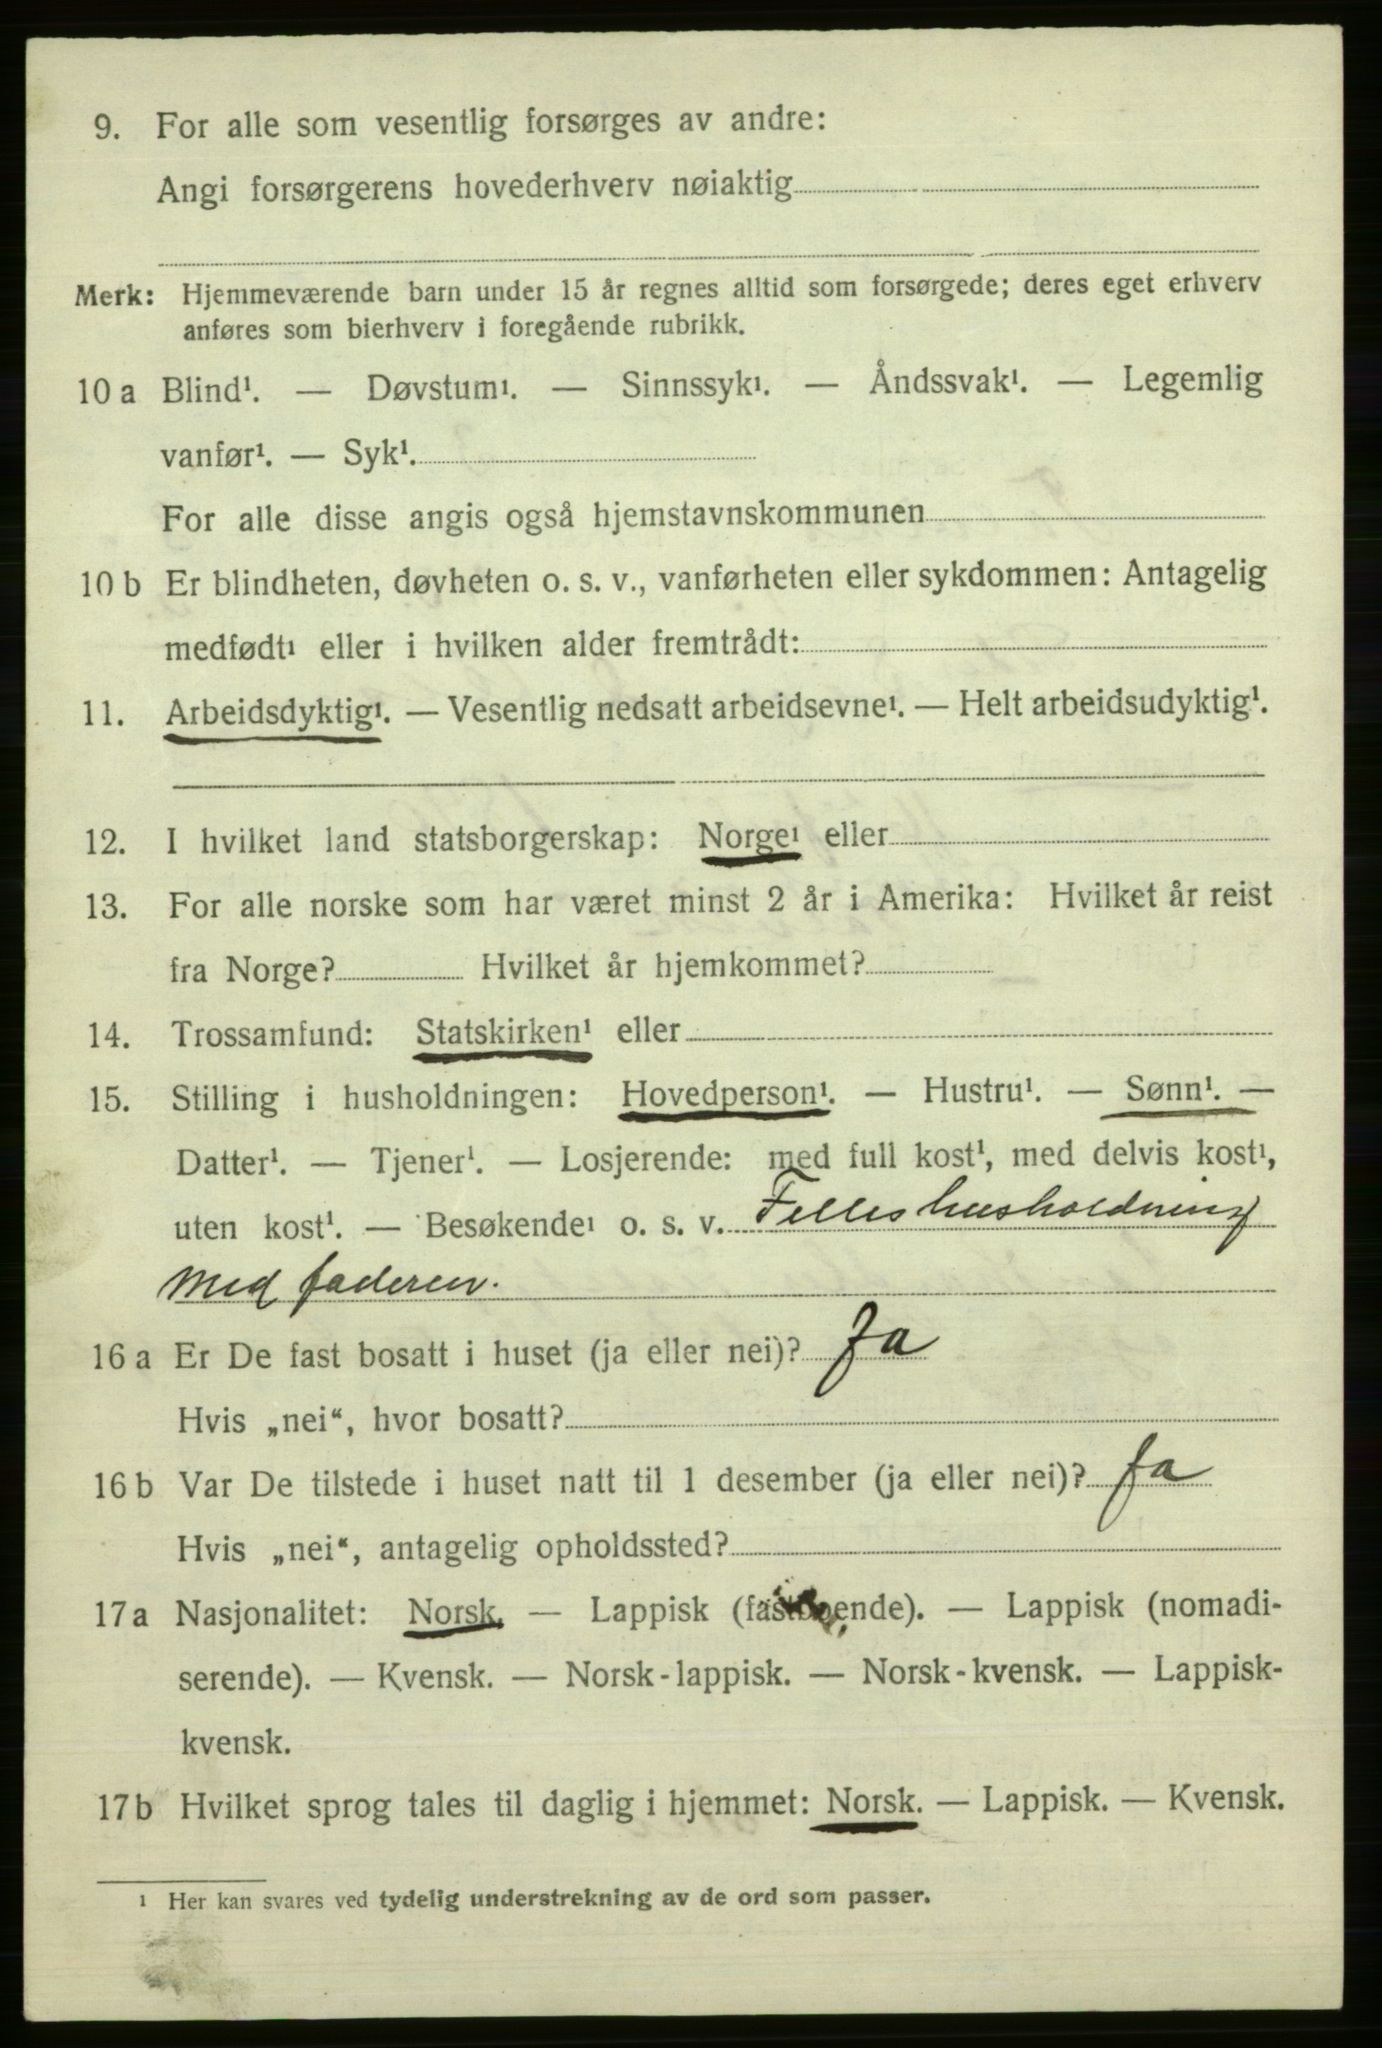 9. For alle som vesentlig forsørges av andre:
Angi forsørgerens hovederhverv nøiaktig
Merk: Hjemmeværende barn under 15 år regnes alltid som forsørgede; deres eget erhverv
anføres som bierhverv i foregående rubrikk.
10 a Blind¹. — Døvstum¹. — Sinnssyk¹. — Åndssvak¹. — Legemlig
vanfør¹. — Syk¹.
For alle disse angis også hjemstavnskommunen
10 b Er blindheten, døvheten o. s. v., vanførheten eller sykdommen: Antagelig
medfødt¹ eller i hvilken alder fremtrådt:
11. Arbeidsdyktig¹. — Vesentlig nedsatt arbeidsevne¹. — Helt arbeidsudyktig¹.
12. I hvilket land statsborgerskap: Norge¹ eller
13. For alle norske som har været minst 2 år i Amerika: Hvilket år reist
fra Norge? Hvilket år hjemkommet?
14. Trossamfund: Statskirken¹ eller
15. Stilling i husholdningen: Hovedperson¹. — Hustru¹. — Sønn¹. —
Datter¹. — Tjener¹. — Losjerende: med full kost¹, med delvis kost¹,
uten kost¹. — Besøkende¹ o. s. v. Felleshusholdning
med faderen.
16 a Er De fast bosatt i huset (ja eller nei)? Ja
Hvis „nei“, hvor bosatt?
16 b Var De tilstede i huset natt til 1 desember (ja eller nei)? Ja
Hvis „nei“, antagelig opholdssted?
17 a Nasjonalitet: Norsk. — Lappisk (fastboende). — Lappisk (nomadi-
serende). — Kvensk. — Norsk-lappisk. — Norsk-kvensk. — Lappisk-
kvensk.
17 b Hvilket sprog tales til daglig i hjemmet: Norsk. — Lappisk. — Kvensk.
¹ Her kan svares ved tydelig understrekning av de ord som passer.